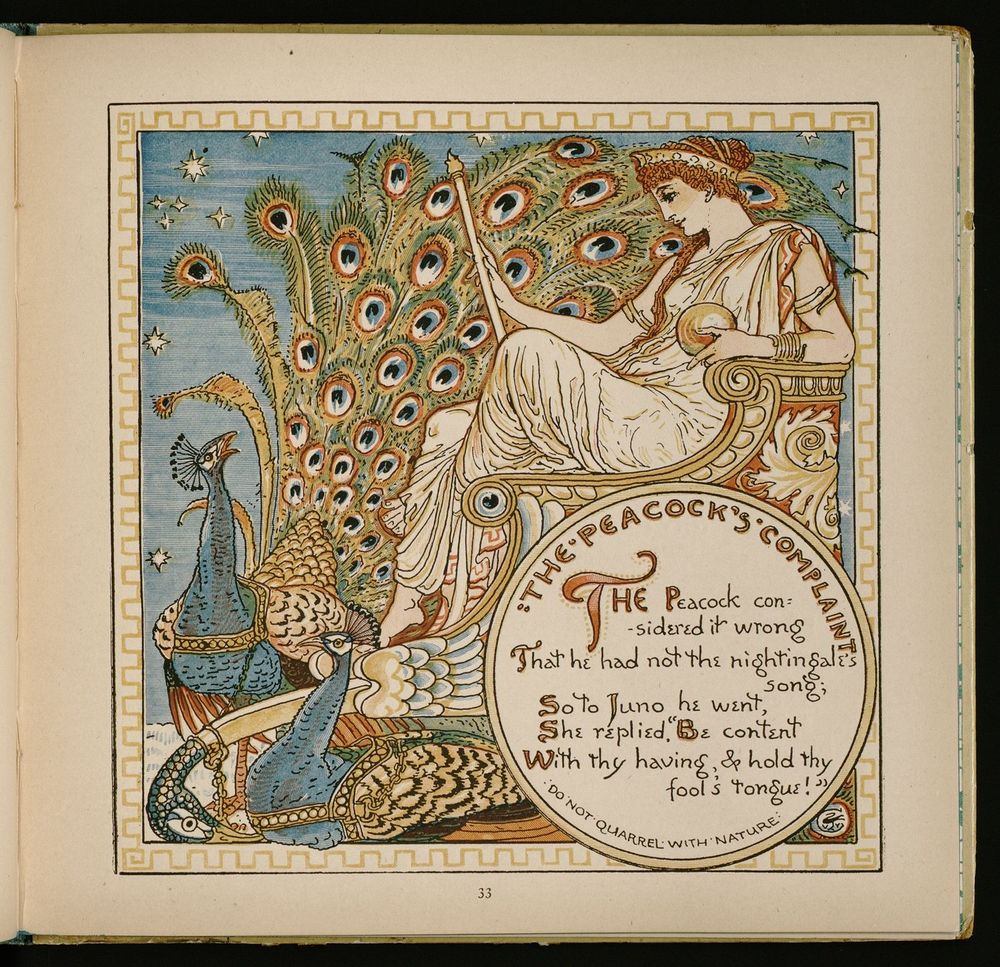 "THE·PEACOCK'S·COMPLAINT
THE Peacock con=
-sidered it wrong
That he had not the nightingale's
song;
So to Juno he went,
She replied, "Be content
With thy having, & hold thy
fool's tongue!"
·DO·NOT·QUARREL·WITH·NATURE·
33